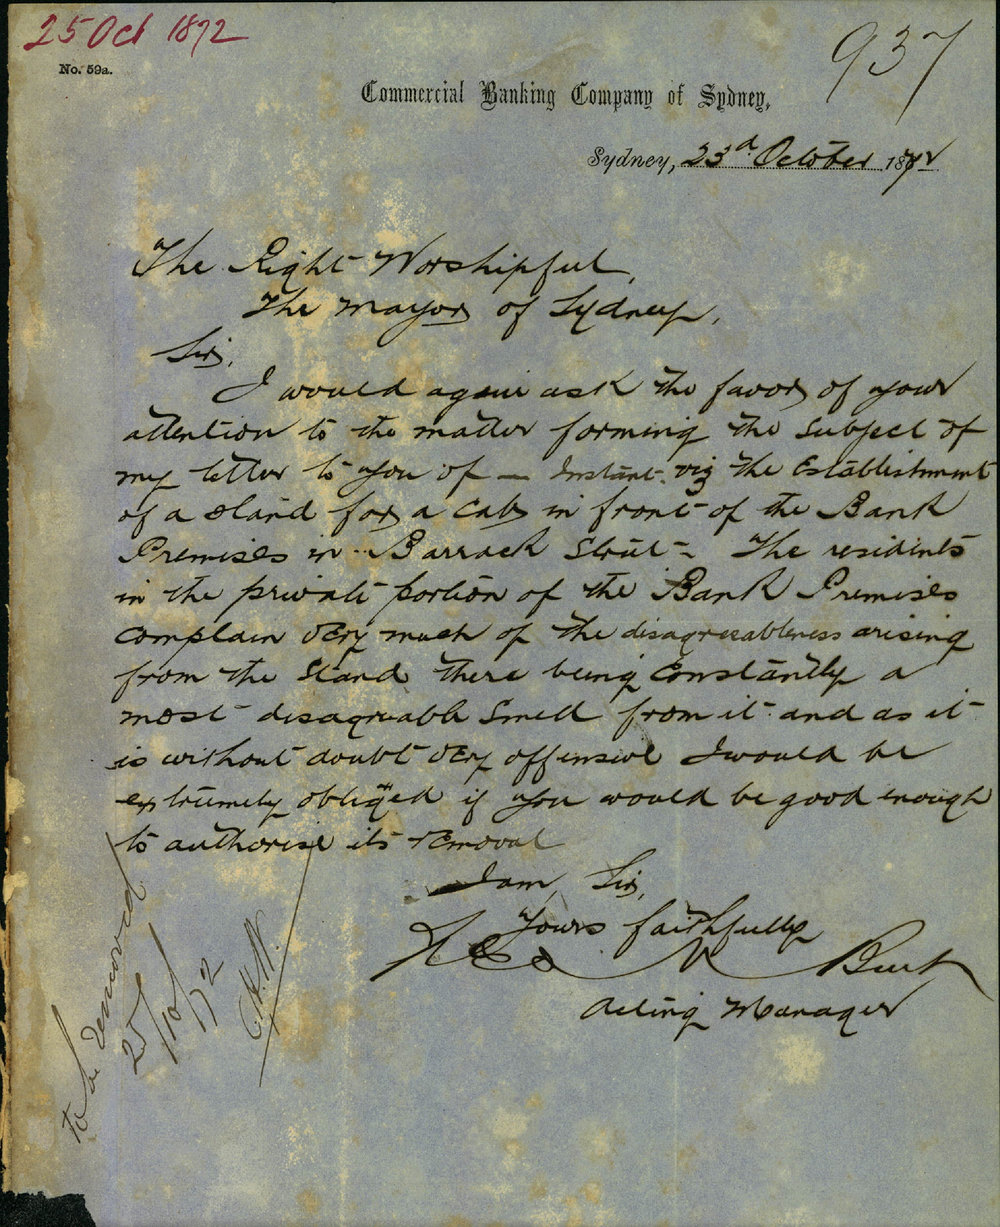 25 Oct 1872
937
No. 59a.
Commercial Banking Company of Sydney,
Sydney, 23d October 1872
The Right Worshipful,
The Mayor of Sydney,
Sir,
I would again ask the favor of your
attention to the matter forming the subject of
my letter to you of — Instant. viz the Establishment
of a Stand for a Cab in front of the Bank
Premises in Barrack Street – The residents
in the private portion of the Bank Premises
complain very much of the disagreeableness arising
from the Stand there being Constantly a
most disagreable Smell from it and as it
is without doubt very offensive I would be
extremely obliged if you would be good enough
to authorise its removal
I am, Sir,
Yours faithfully
Burt
Acting Manager
To be removed
25/10/72